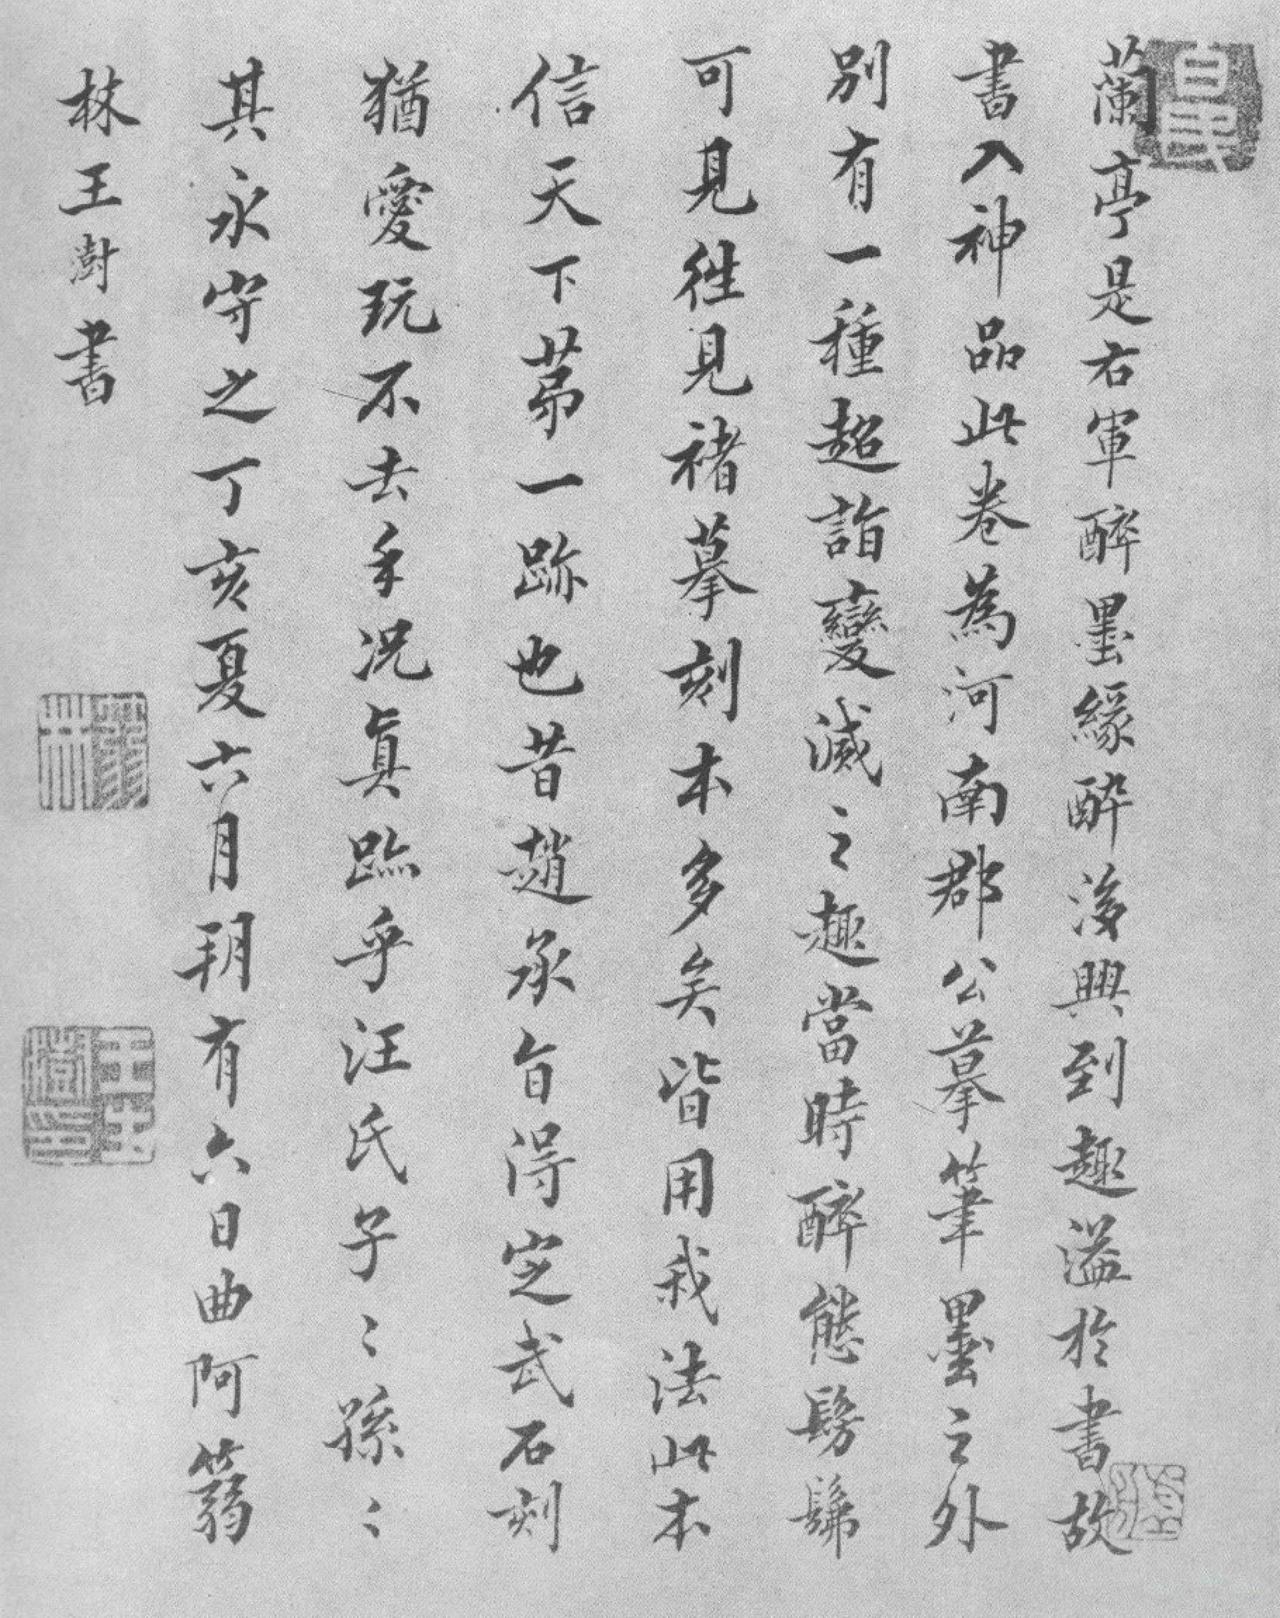 蘭亭是右軍醉墨緣醉後興到趣溢於書故
書入神品此卷為河南郡公摹筆墨之外
別有一種超詣變滅之趣當時醉態髣髴
可見徃見褚摹刻本多矣皆用我法此本
信天下苐一跡也昔趙承旨得定武石刻
猶愛玩不去手況真跡乎汪氏子〻孫〻
其永守之丁亥夏六月朔有六日曲阿篛
林王澍書